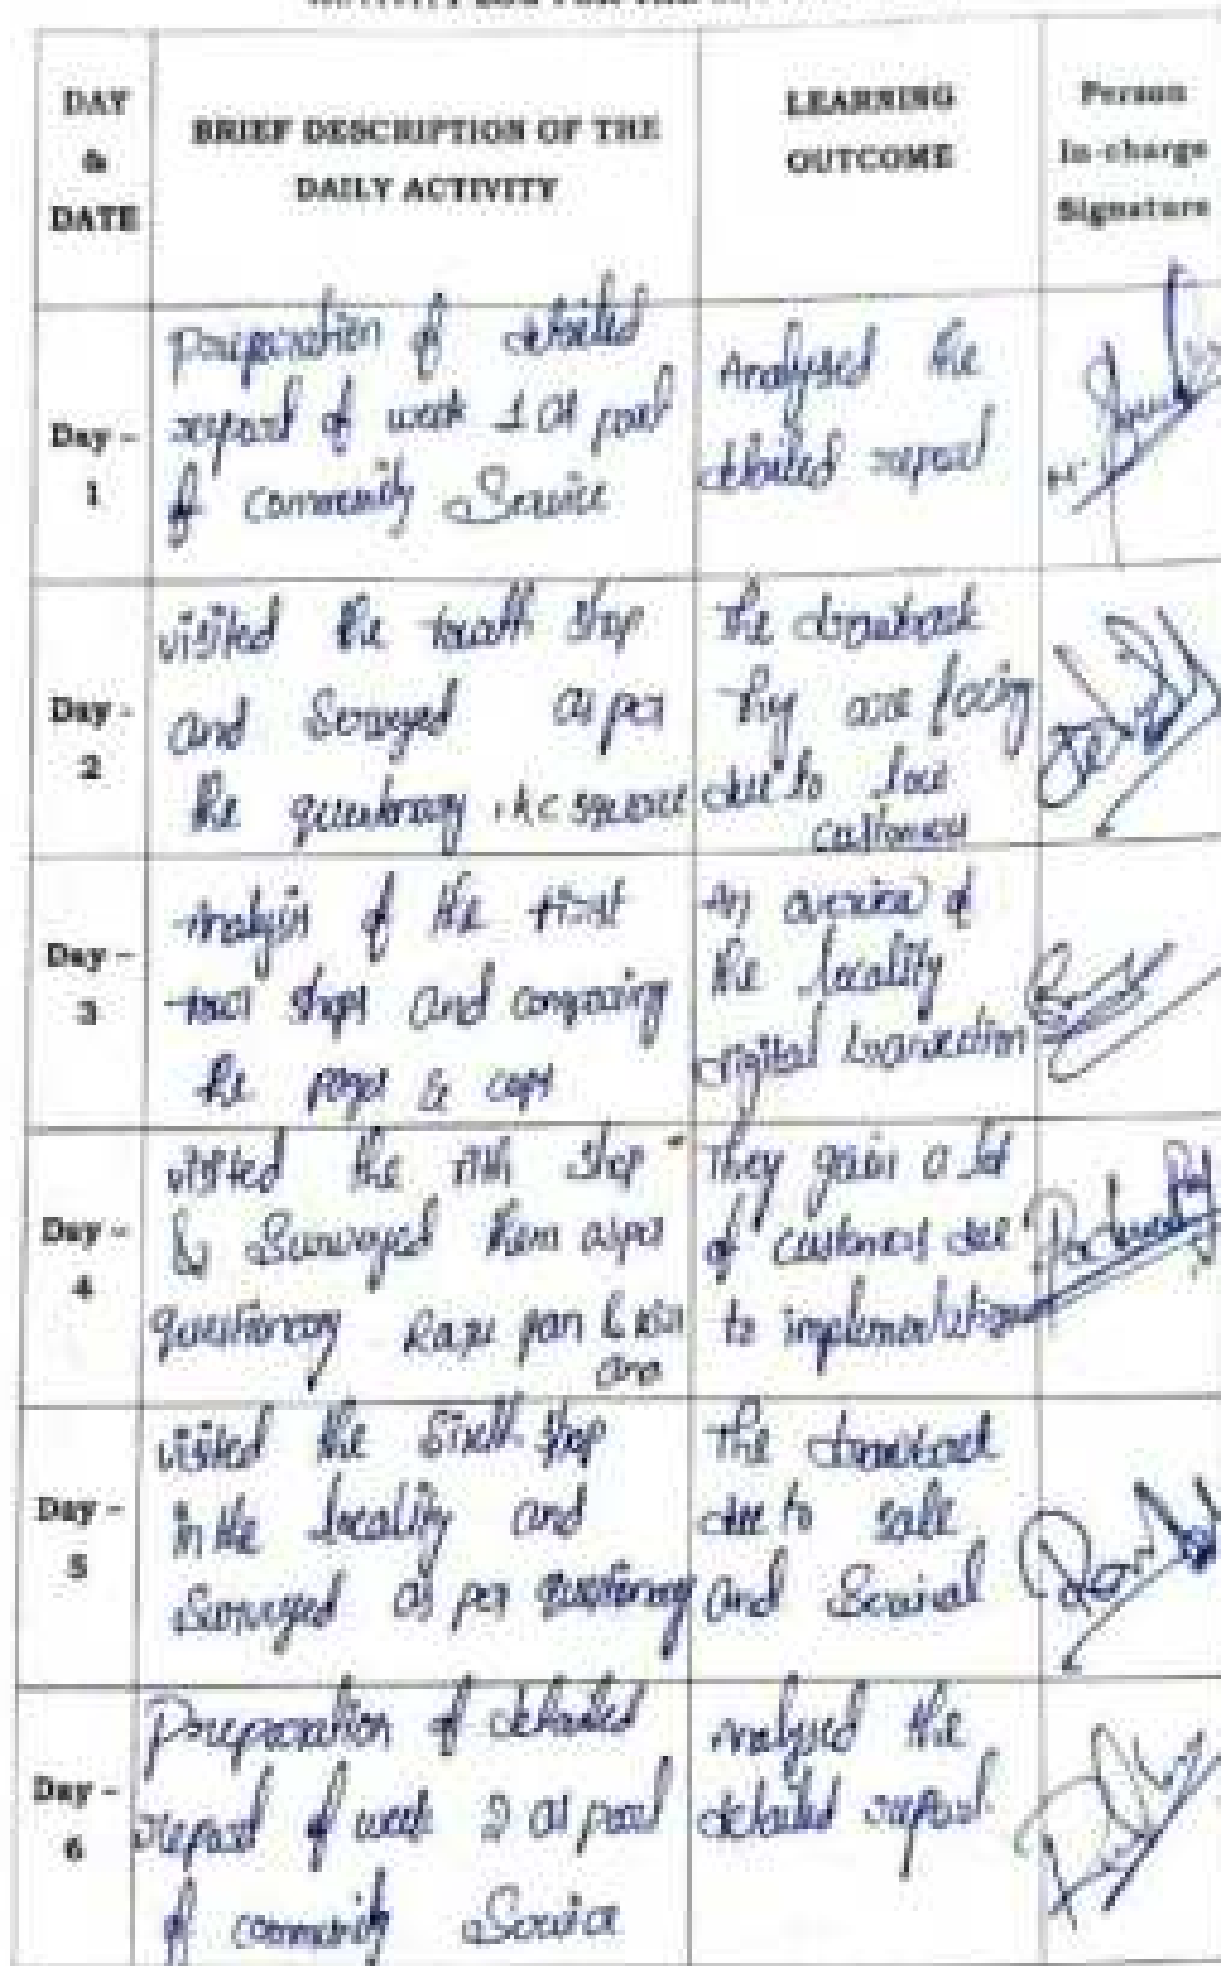 DAY
&
DATE
BRIEF DESCRIPTION OF THE
DAILY ACTIVITY
LEARNING
OUTCOME
Person
In-charge
Signature
Day -
1
preparation of detailed
report of week 1 as part
of community Service
Analysed the
detailed report
Day -
2
visited the fourth shop
and Surveyed as per
the questionary
the drawback
they are facing
due to
customers
Day -
3
Analysis of the first
four shops and comparing
the &
An overview of
the locality
digital transaction
Day -
4
visited the fifth shop
& Surveyed them as per
questionary pan
They gain a lot
of customers due
to implementation
Day -
5
visited the sixth shop
in the locality and
Surveyed as per questionary
The drawback
due to sale
and
Day -
6
Preparation of detailed
report of week 2 as part
of community Service
Analysed the
detailed report